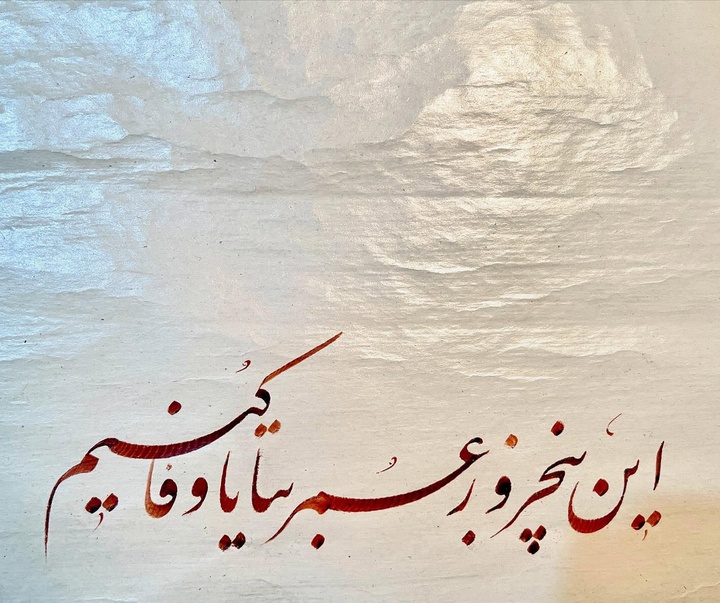 این پنج روز عمر بیا تا وفا کنیم